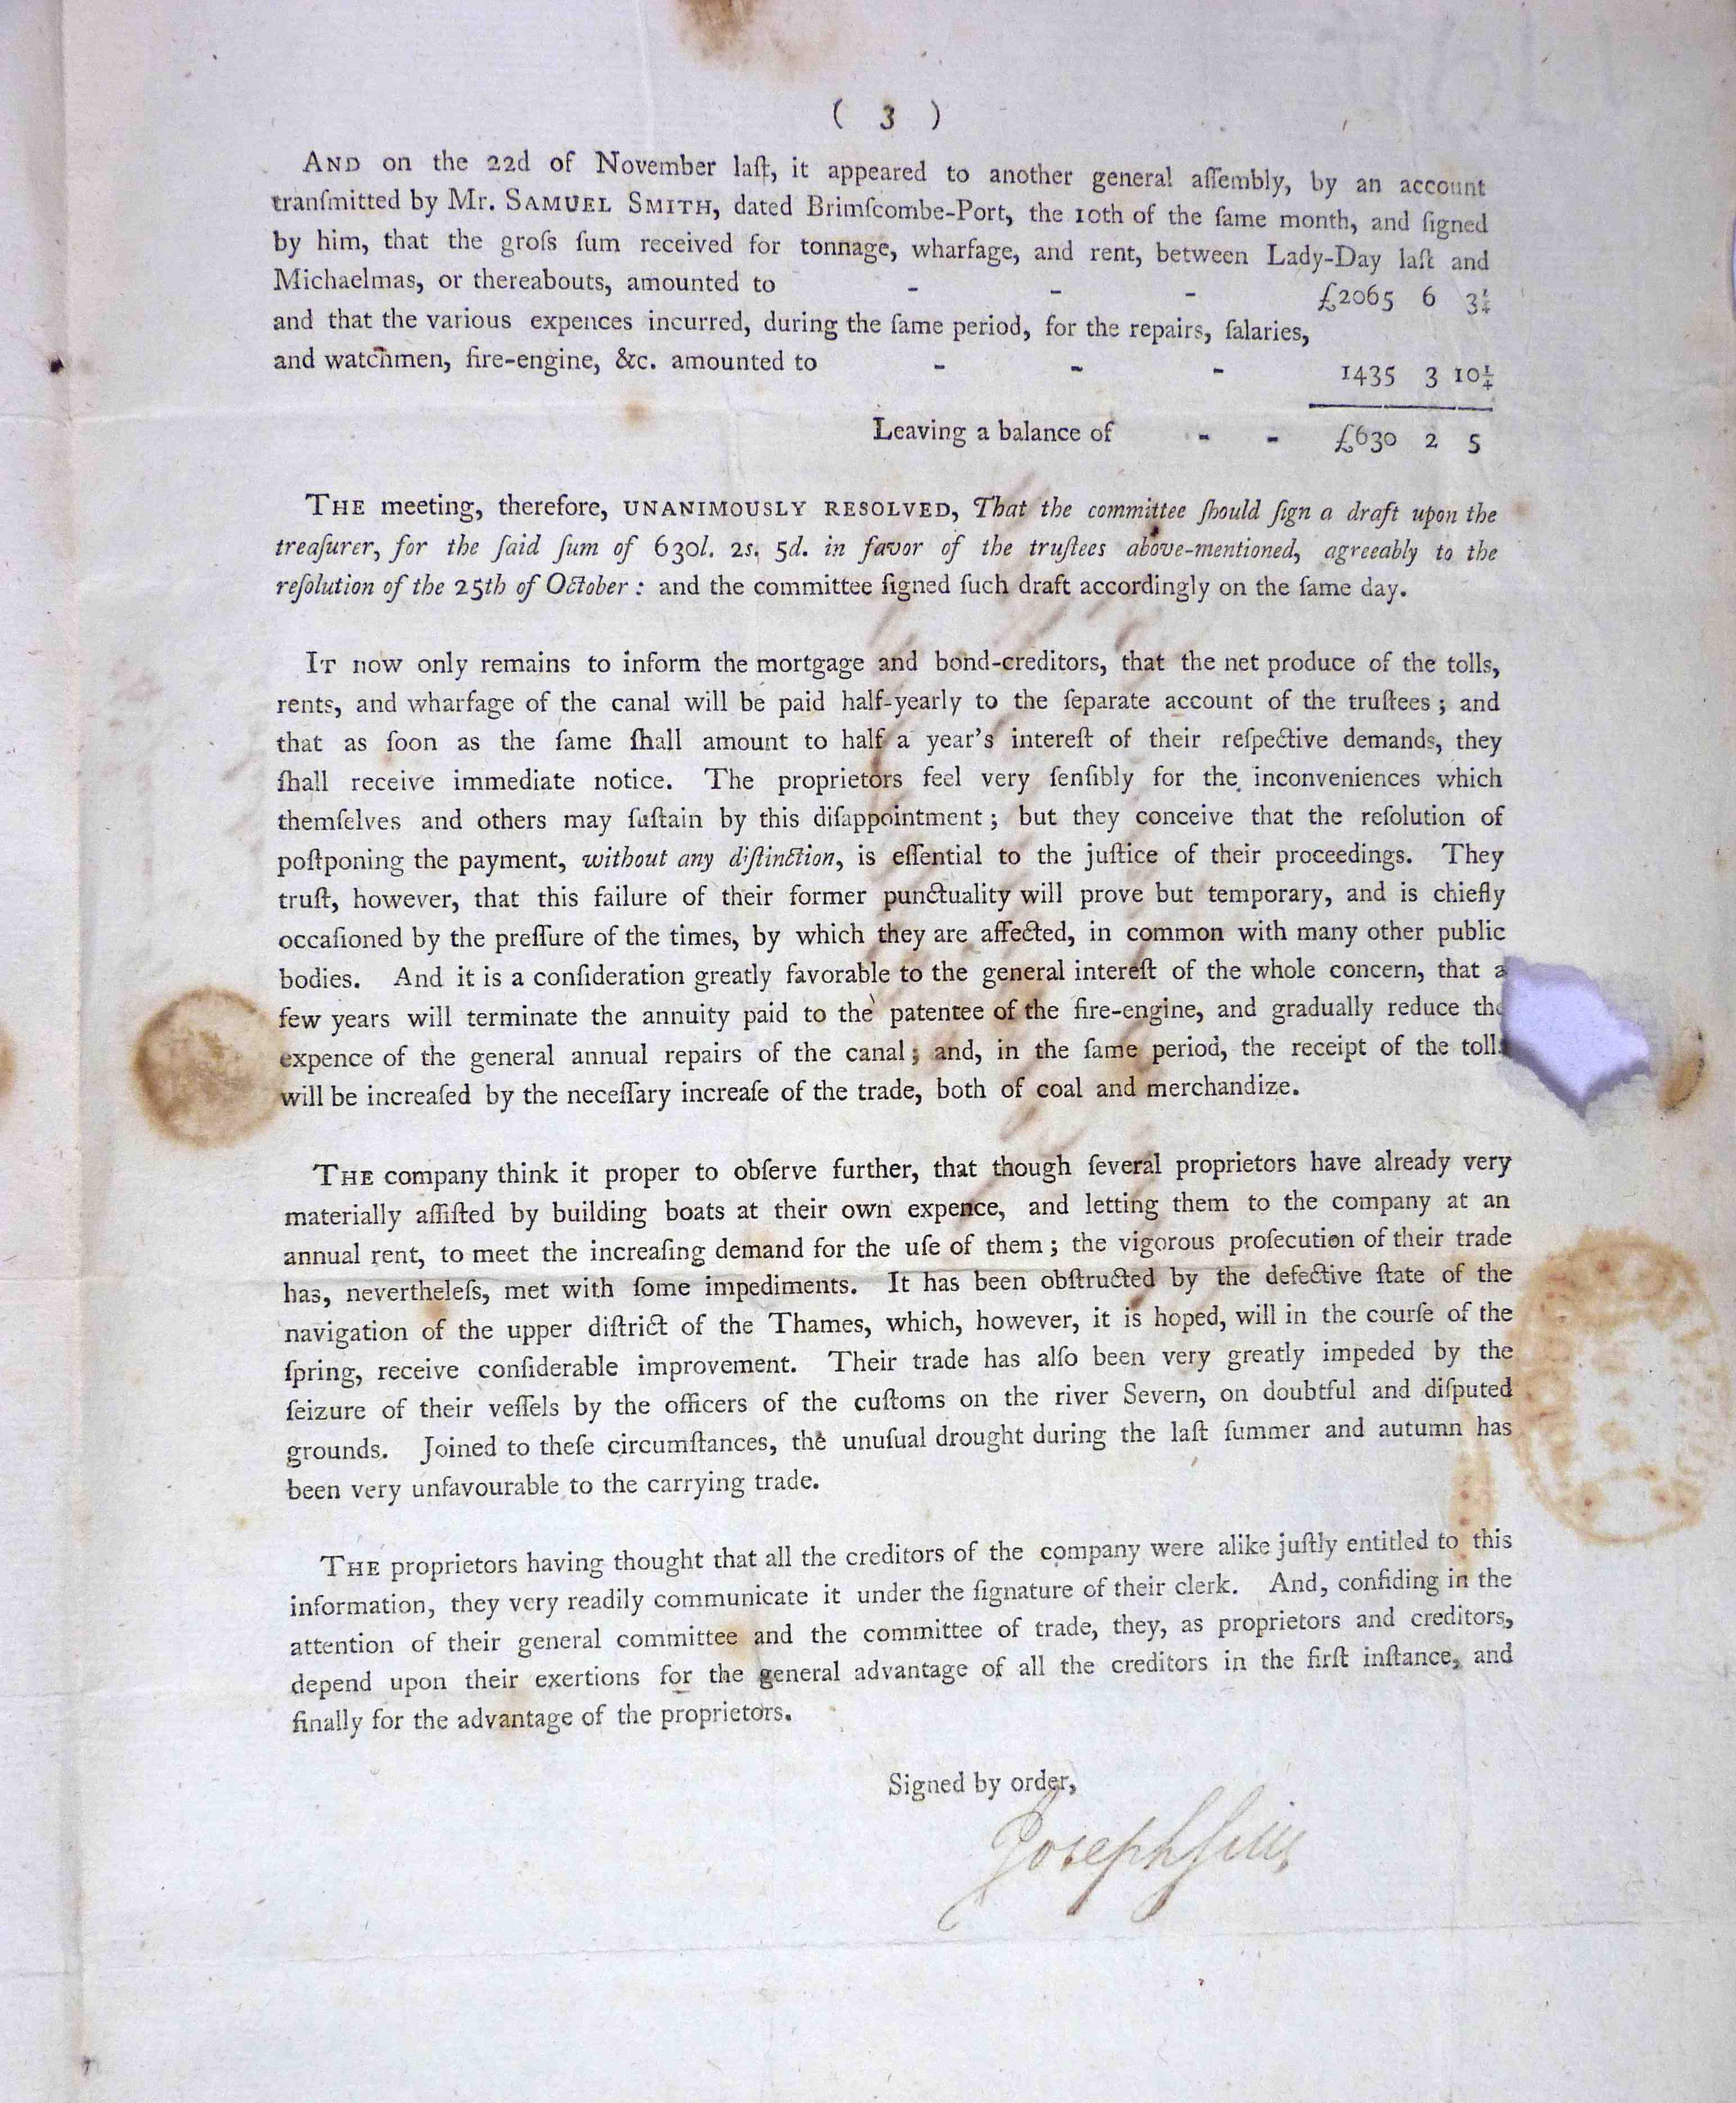 ( 3 )
AND on the 22d of November laſt, it appeared to another general aſſembly, by an account
tranſmitted by Mr. SAMUEL SMITH, dated Brimſcombe-Port, the 10th of the ſame month, and ſigned
by him, that the groſs ſum received for tonnage, wharfage, and rent, between Lady-Day laſt and
Michaelmas, or thereabouts, amounted to - - - £2065 6 3¼
and that the various expences incurred, during the ſame period, for the repairs, ſalaries,
and watchmen, fire-engine, &c. amounted to - - - 1435 3 10¼
Leaving a balance of - - £630 2 5
THE meeting, therefore, UNANIMOUSLY RESOLVED, That the committee ſhould ſign a draft upon the
treaſurer, for the ſaid ſum of 630l. 2s. 5d. in favor of the truſtees above-mentioned, agreeably to the
reſolution of the 25th of October: and the committee ſigned ſuch draft accordingly on the ſame day.
IT now only remains to inform the mortgage and bond-creditors, that the net produce of the tolls,
rents, and wharfage of the canal will be paid half-yearly to the ſeparate account of the truſtees; and
that as ſoon as the ſame ſhall amount to half a year's intereſt of their reſpective demands, they
ſhall receive immediate notice. The proprietors feel very ſenſibly for the inconveniences which
themſelves and others may ſuſtain by this diſappointment; but they conceive that the reſolution of
poſtponing the payment, without any diſtinction, is eſſential to the juſtice of their proceedings. They
truſt, however, that this failure of their former punctuality will prove but temporary, and is chiefly
occaſioned by the preſſure of the times, by which they are affected, in common with many other public
bodies. And it is a conſideration greatly favorable to the general intereſt of the whole concern, that a
few years will terminate the annuity paid to the patentee of the fire-engine, and gradually reduce the
expence of the general annual repairs of the canal; and, in the ſame period, the receipt of the tolls
will be increaſed by the neceſſary increaſe of the trade, both of coal and merchandize.
THE company think it proper to obſerve further, that though ſeveral proprietors have already very
materially aſſiſted by building boats at their own expence, and letting them to the company at an
annual rent, to meet the increaſing demand for the uſe of them; the vigorous proſecution of their trade
has, nevertheleſs, met with ſome impediments. It has been obſtructed by the defective ſtate of the
navigation of the upper diſtrict of the Thames, which, however, it is hoped, will in the courſe of the
ſpring, receive conſiderable improvement. Their trade has alſo been very greatly impeded by the
ſeizure of their veſſels by the officers of the cuſtoms on the river Severn, on doubtful and diſputed
grounds. Joined to theſe circumſtances, the unuſual drought during the laſt ſummer and autumn has
been very unfavourable to the carrying trade.
THE proprietors having thought that all the creditors of the company were alike juſtly entitled to this
information, they very readily communicate it under the ſignature of their clerk. And, confiding in the
attention of their general committee and the committee of trade, they, as proprietors and creditors,
depend upon their exertions for the general advantage of all the creditors in the firſt inſtance, and
finally for the advantage of the proprietors.
Signed by order,
Joseph